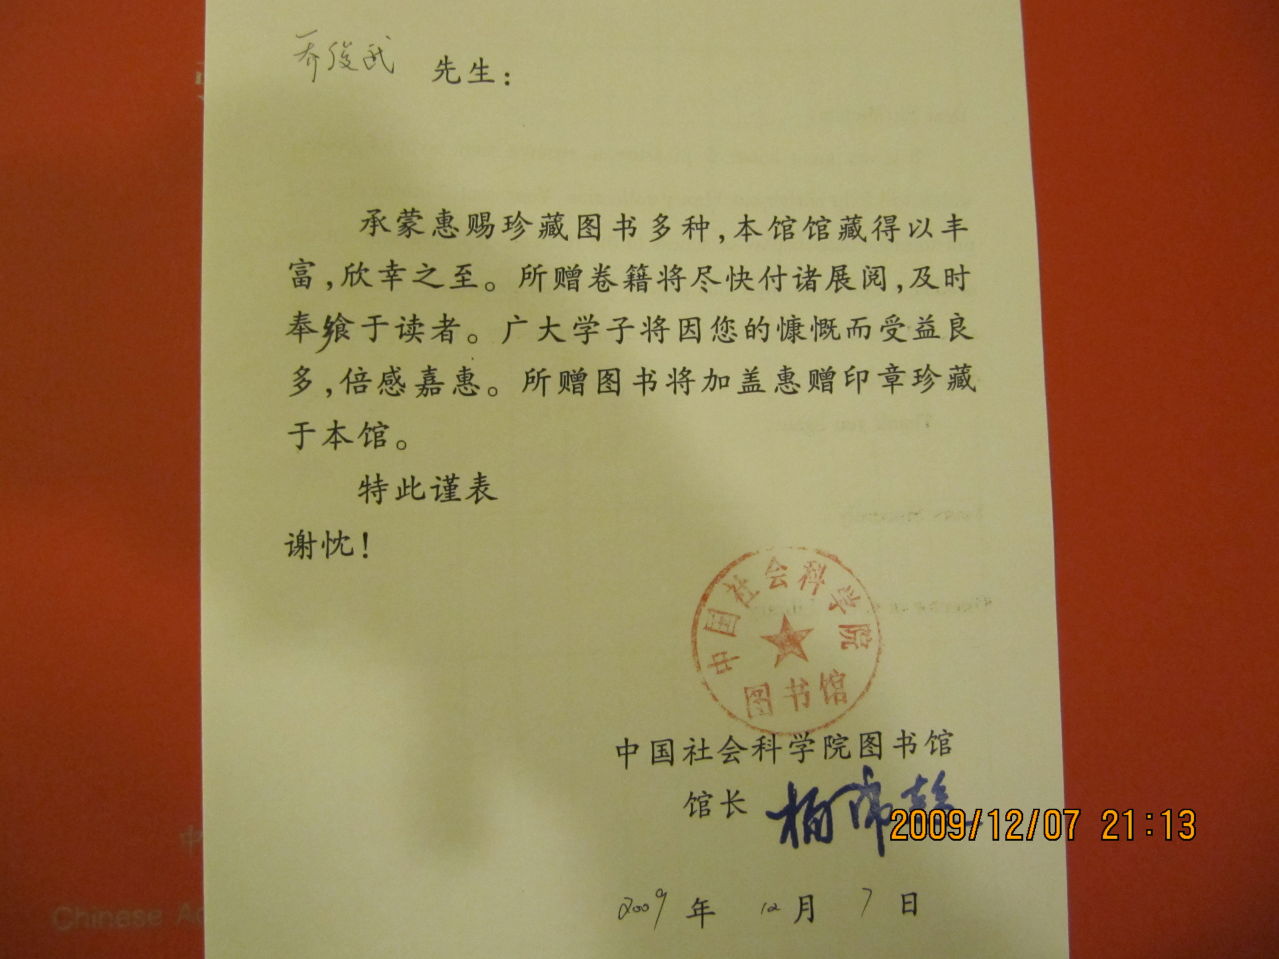 乔俊武 先生：
承蒙惠赐珍藏图书多种，本馆馆藏得以丰
富，欣幸之至。所赠卷籍将尽快付诸展阅，及时
奉飨于读者。广大学子将因您的慷慨而受益良
多，倍感嘉惠。所赠图书将加盖惠赠印章珍藏
于本馆。
特此谨表
谢忱！
中国社会科学院
图书馆
中国社会科学院图书馆
馆长
2009/12/07 21:13
2009 年 12 月 7 日
Chinese